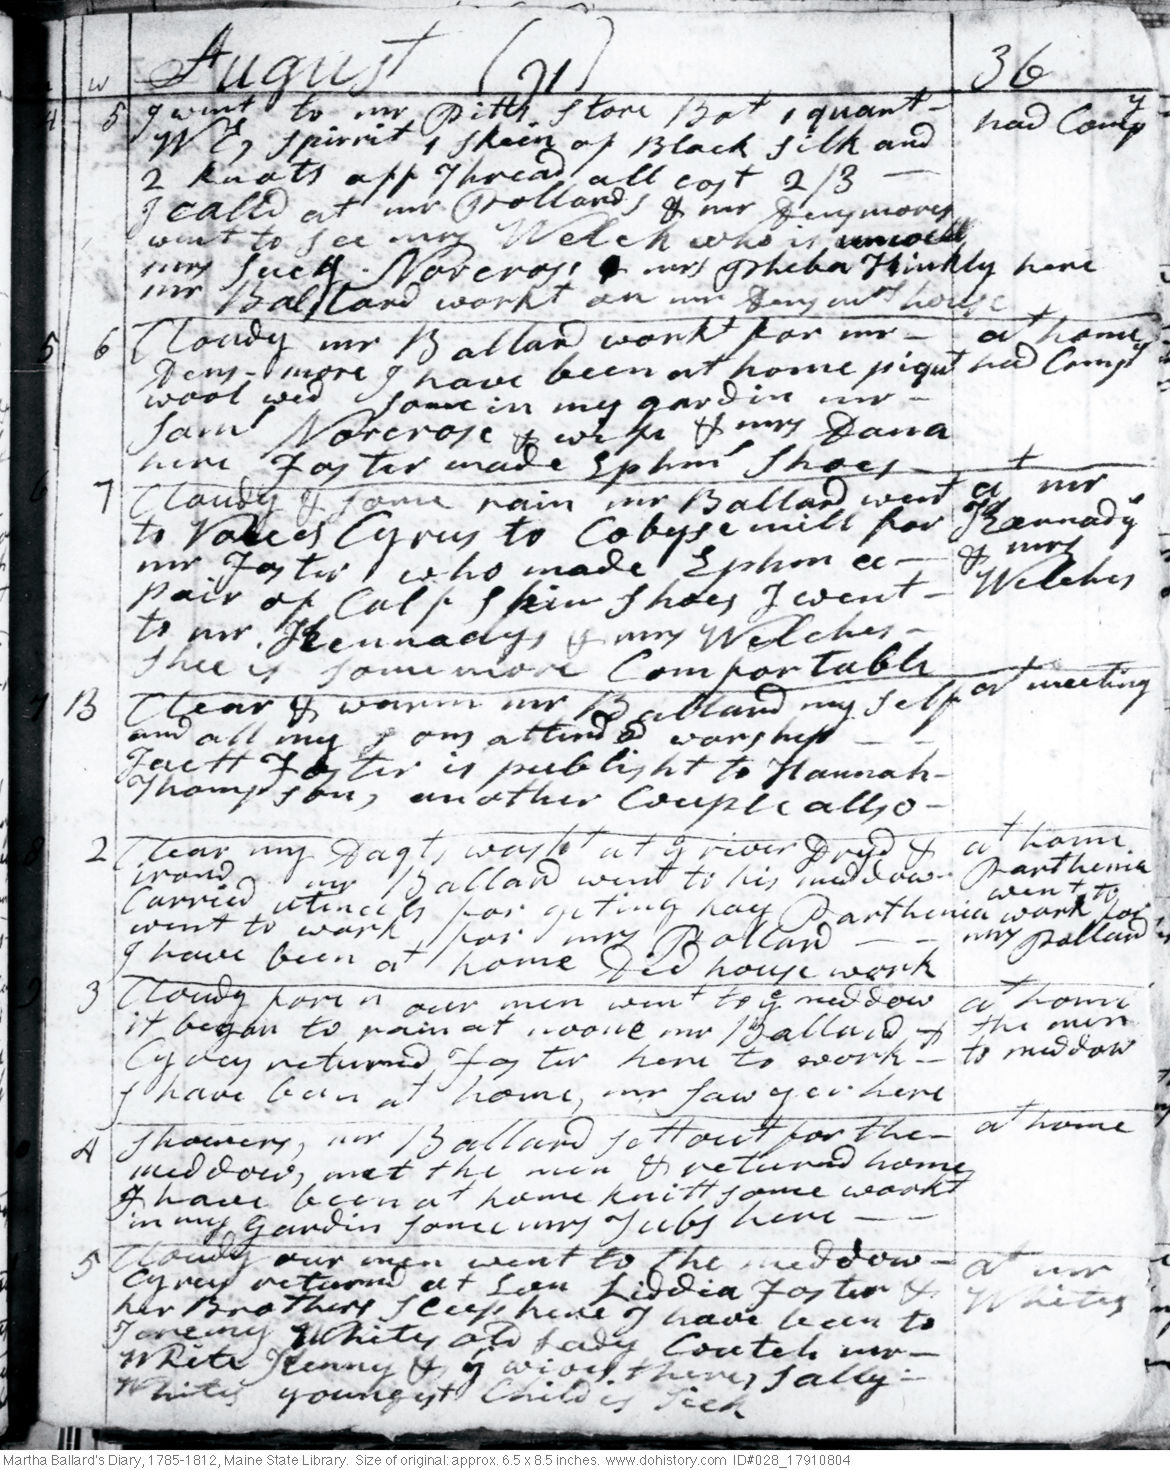 August (91) 36
4 5 I went to mr Pitts Store Bot 1 quant had Compy
W E, spirrit 1 skein of Black silk and
2 knots off Thread all cost 2/3
I calld at mr Pollards & mr Densmores
went to see mrs Welch who is unwell
mrs Suck Norcross & mrs Pheba Hinkly here
mr Ballard workt on mr Densmrs house
5 6 Cloudy mr Ballard workt for mr at home
Dens-more I have been at home piqut had Compy
wool wed some in my gardin mr
Saml Norcrose & wife & mrs Dana
here Foster made Ephm Shoes
6 7 Cloudy & some rain mr Ballard went at mr
to Cyrus to Cobyse mill for Kennadys
mr Foster who made Ephm a & mrs
pair of Calf Skin Shoes I went Welches
to mr Kennadys & mrs Welches
Shee is some more Comfortable
7 B Clear & warm mr Ballard my self at meeting
and all my sons attindd worship
Foster is publisht to Hannah
Thompson, another Couple allso
8 2 Clear my Dagts washt at ye river Dryd & at home
irond mr Ballard went to his meddow Parthenia
Carried utencels for geting hay Parthenia went to
went to work for mrs Pollard work for
I have been at home Did house work mrs Pollard
9 3 Cloudy foren our men went to ye meddow at home
it began to rain at noone mr Ballard & the men
returned, Foster here to work to meddow
I have been at home, mr Sawyer here
4 showers, mr Ballard sett out for the at home
meddow, met the men & returnd home
I have been at home knitt some workt
in my gardin some mrs Tubs here
5 Cloudy our men went to the meddow at mr
Cyrus returnd at Son Liddia Foster & Whites
her Brothers sleep here I have been to
Jeremy Whites old Lady Coutch mr
White Kenny & ye wives there, Sally
Whites youngest Child is sick
Martha Ballard's Diary, 1785-1812, Maine State Library. Size of original: approx. 6.5 x 8.5 inches. www.dohistory.com ID#028_17910804